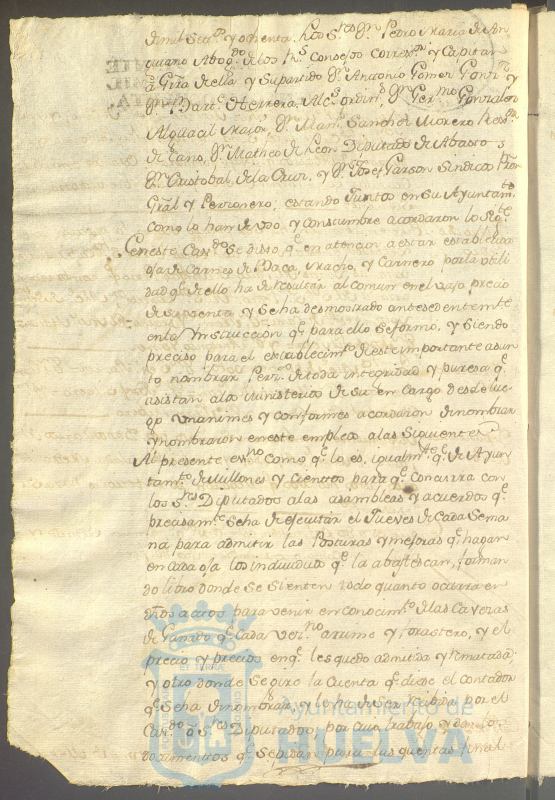 de mil Setz.s y ochenta. Los S.res D.n Pedro Maria de An
quiano Abog.do de los R.s Consejos Corres.or y Capitan
à Grã de ella y Supartido D.n Antonio Gomez
D.n Herrera, Alc.s ordin.s D.n Ger.mo Gonzalez
Alguacil Maior, D.n Man.l Sanchez Moreno
D.n Matheo de Leon Diputado de Abastos
D.n Cristobal de la Cruz, y D.n Josef Garzon Sindico
Grãl y Personero; estando Juntos en Su Ayuntam.to
como lo han de vso, y constumbre acordaron lo Sig.te
En este Cav.do Se disso, q.e en atencion a estar establecida
de Carnes de Baca, Macho, y Carnero por la vtili
dad q.e de ello ha de resultar al comun en el vajo precio
de Supsenta y Se ha desmostrado antesedentemente
en la Ynstruccion q.e para ello Se formo, y Siendo
preciso para el establecim.to de este importante asun
to nombrar Pers.s de toda integridad y puresa q.e
asistan al ministerio de Su en cargo desde lue
go vnanimes y conformes acordaron de nombrar
y nombraron en este empleo a las Siguientes
Al presente es.no como q.e lo es, igualm.te q.e de Ayun
tam.to de Millones y Cientos para q.e concurra con
los S.res Diputados a las asambleas y acuerdos q.e
precisam.te Se ha de ejecutar el Jueves de Cada Sema
na para admitir las Posturas y mejoras q.e hagan
en Cada los individuos q.e la abastescan, forman
do libro donde Se Sienten todo quanto ocurra en
dhos actos para venir en conocim.to de las Caveras
de Ganado q.e Cada vez.no arrime y forastero, y el
precio y precios en q.e les quedo admitida y Rematada;
y otro donde Se gire la Cuenta q.e diese el contador
q.e Se ha de nombrar, y lo ha de Ser Recibida por el
Cav.do ò S.res Diputados, por cuio trabajo y de los
documentos q.e Se pidan para las quentas
Ayuntamiento de
HUELVA